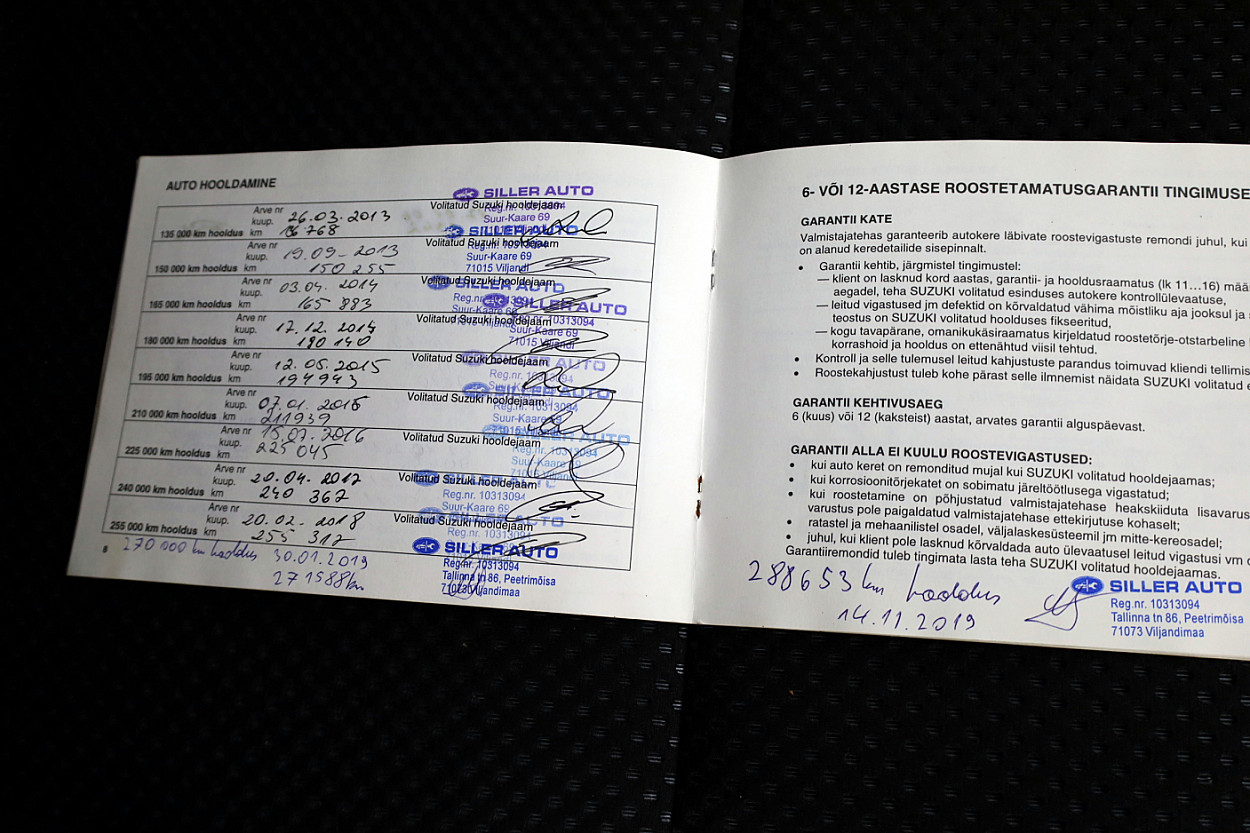 AUTO HOOLDAMINE
SILLER AUTO
Arve nr
kuup. 26.03.2013 Volitatud Suzuki hooldejaam
Reg.nr. 10313094
Suur-Kaare 69
135 000 km hooldus km
SILLER AUTO
Arve nr
kuup. 19.09-2013 Volitatud Suzuki hooldejaam
Reg.nr. 10313094
Suur-Kaare 69
150 000 km hooldus km 150 255
71015 Viljandi
Arve nr
kuup. 03.04.2014 Volitatud Suzuki hooldejaam
165 000 km hooldus km 165 883
SILLER AUTO
Arve nr
kuup. 17.12.2014 Volitatud Suzuki hooldejaam
Suur-Kaare 69
180 000 km hooldus km 180 140
71015 Viljandi
Arve nr
kuup. 12.05.2015 Volitatud Suzuki hooldejaam
195 000 km hooldus km 194943
Arve nr
kuup. 07.01.2016 Volitatud Suzuki hooldejaam
210 000 km hooldus km 211939
Arve nr
kuup. 15.07.2016 Volitatud Suzuki hooldejaam
225 000 km hooldus km 225 045
Arve nr
kuup. 20.04.2017 Volitatud Suzuki hooldejaam
Reg.nr. 10313094
Suur-Kaare 69
240 000 km hooldus km 240 362
Arve nr
kuup. 20.02.2018 Volitatud Suzuki hooldejaam
255 000 km hooldus km 255 317
SILLER AUTO
Reg.nr. 10313094
Tallinna tn 86, Peetrimõisa
71073 Viljandimaa
8
270 000 km hooldus 30.01.2019
271588km
6- VÕI 12-AASTASE ROOSTETAMATUSGARANTII TINGIMUSE
GARANTII KATE
Valmistajatehas garanteerib autokere läbivate roostevigastuste remondi juhul, kui
on alanud keredetailide sisepinnalt.
• Garantii kehtib, järgmistel tingimustel:
— klient on lasknud kord aastas, garantii- ja hooldusraamatus (lk 11…16)
aegadel, teha SUZUKI volitatud esinduses autokere kontrollülevaatuse,
— leitud vigastused jm defektid on kõrvaldatud vähima mõistliku aja jooksul ja
teostus on SUZUKI volitatud hoolduses fikseeritud,
— kogu tavapärane, omanikukäsiraamatus kirjeldatud roostetõrje-otstarbeline
korrashoid ja hooldus on ettenähtud viisil tehtud.
• Kontroll ja selle tulemusel leitud kahjustuste parandus toimuvad kliendi tellimis
• Roostekahjustust tuleb kohe pärast selle ilmnemist näidata SUZUKI volitatud
GARANTII KEHTIVUSAEG
6 (kuus) või 12 (kaksteist) aastat, arvates garantii alguspäevast.
GARANTII ALLA EI KUULU ROOSTEVIGASTUSED:
• kui auto keret on remonditud mujal kui SUZUKI volitatud hooldejaamas;
• kui korrosioonitõrjekatet on sobimatu järeltöötlusega vigastatud;
• kui roostetamine on põhjustatud valmistajatehase heakskiiduta lisavarus
varustus pole paigaldatud valmistajatehase ettekirjutuse kohaselt;
• ratastel ja mehaanilistel osadel, väljalaskesüsteemil jm mitte-kereosadel;
• juhul, kui klient pole lasknud kõrvaldada auto ülevaatusel leitud vigastusi vm
Garantiiremondid tuleb tingimata lasta teha SUZUKI volitatud hooldejaamas.
288653 km hooldus
14.11.2019
SILLER AUTO
Reg.nr. 10313094
Tallinna tn 86, Peetrimõisa
71073 Viljandimaa